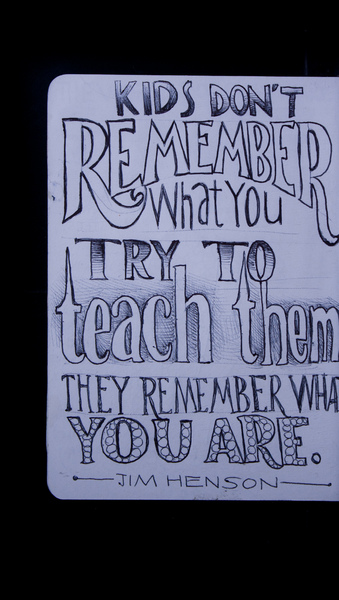 KIDS DON'T
REMEMBER
What YOU
TRY TO
teach them
THEY REMEMBER WHA
YOU ARE.
JIM HENSON